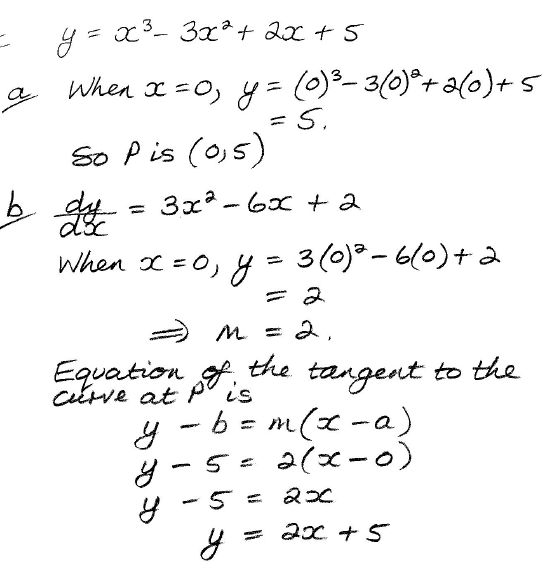 y = x³ - 3x² + 2x + 5
a When x = 0, y = (0)³ - 3(0)² + 2(0) + 5
= 5.
So P is (0,5)
b dy/dx = 3x² - 6x + 2
When x = 0, y = 3(0)² - 6(0) + 2
= 2
⇒ m = 2.
Equation of the tangent to the
curve at P is
y - b = m(x - a)
y - 5 = 2(x - 0)
y - 5 = 2x
y = 2x + 5